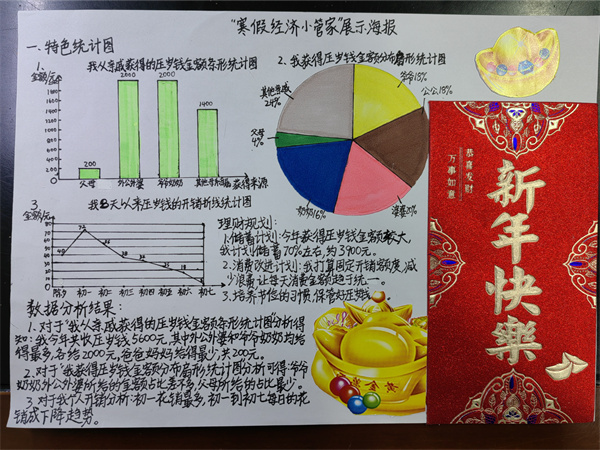 "寒假经济小管家"展示海报
一.特色统计图
1.
我从亲戚获得的压岁钱金额条形统计图
金额/元
2000
2000
1400
200
1800
1600
1400
1200
1000
800
600
400
200
0
父母
外公外婆
爷爷奶奶
其他亲戚
获得来源
2.我获得压岁钱金额分布扇形统计图
爷爷18%
公公18%
婆婆20%
奶奶16%
父母
4%
其他亲戚
24%
3.
我8天以来压岁钱的开销折线统计图
金额/元
80
70
60
50
40
30
20
10
0
40
35
18
除夕
初一
初二
初三
初四
初五
初六
初七
理财规划:
1.储蓄计划:今年获得压岁钱金额较大,
我计划储蓄70%左右,约3900元。
2.消费改进计划:我打算固定开销额度,减
少浪费,让每天消费金额趋于统一。
3.培养节俭的习惯,保管好压岁钱。
数据分析结果:
1.对于"我从亲戚获得的压岁钱金额条形统计图分析得
知:我今年共收压岁钱5600元,其中外公外婆和爷爷奶奶均给
得最多,各给2000元,爸爸妈妈给得最少,共200元。
2.对于"我获得压岁钱金额分布扇形统计图分析可得:爷爷
奶奶外公外婆所给的金额占比差不多,父母所给的占比最少。
3.对于我个人开销分析:初一花销最多,初一到初七每日的花
销成下降趋势。
恭喜发财
万事如意
新年快樂